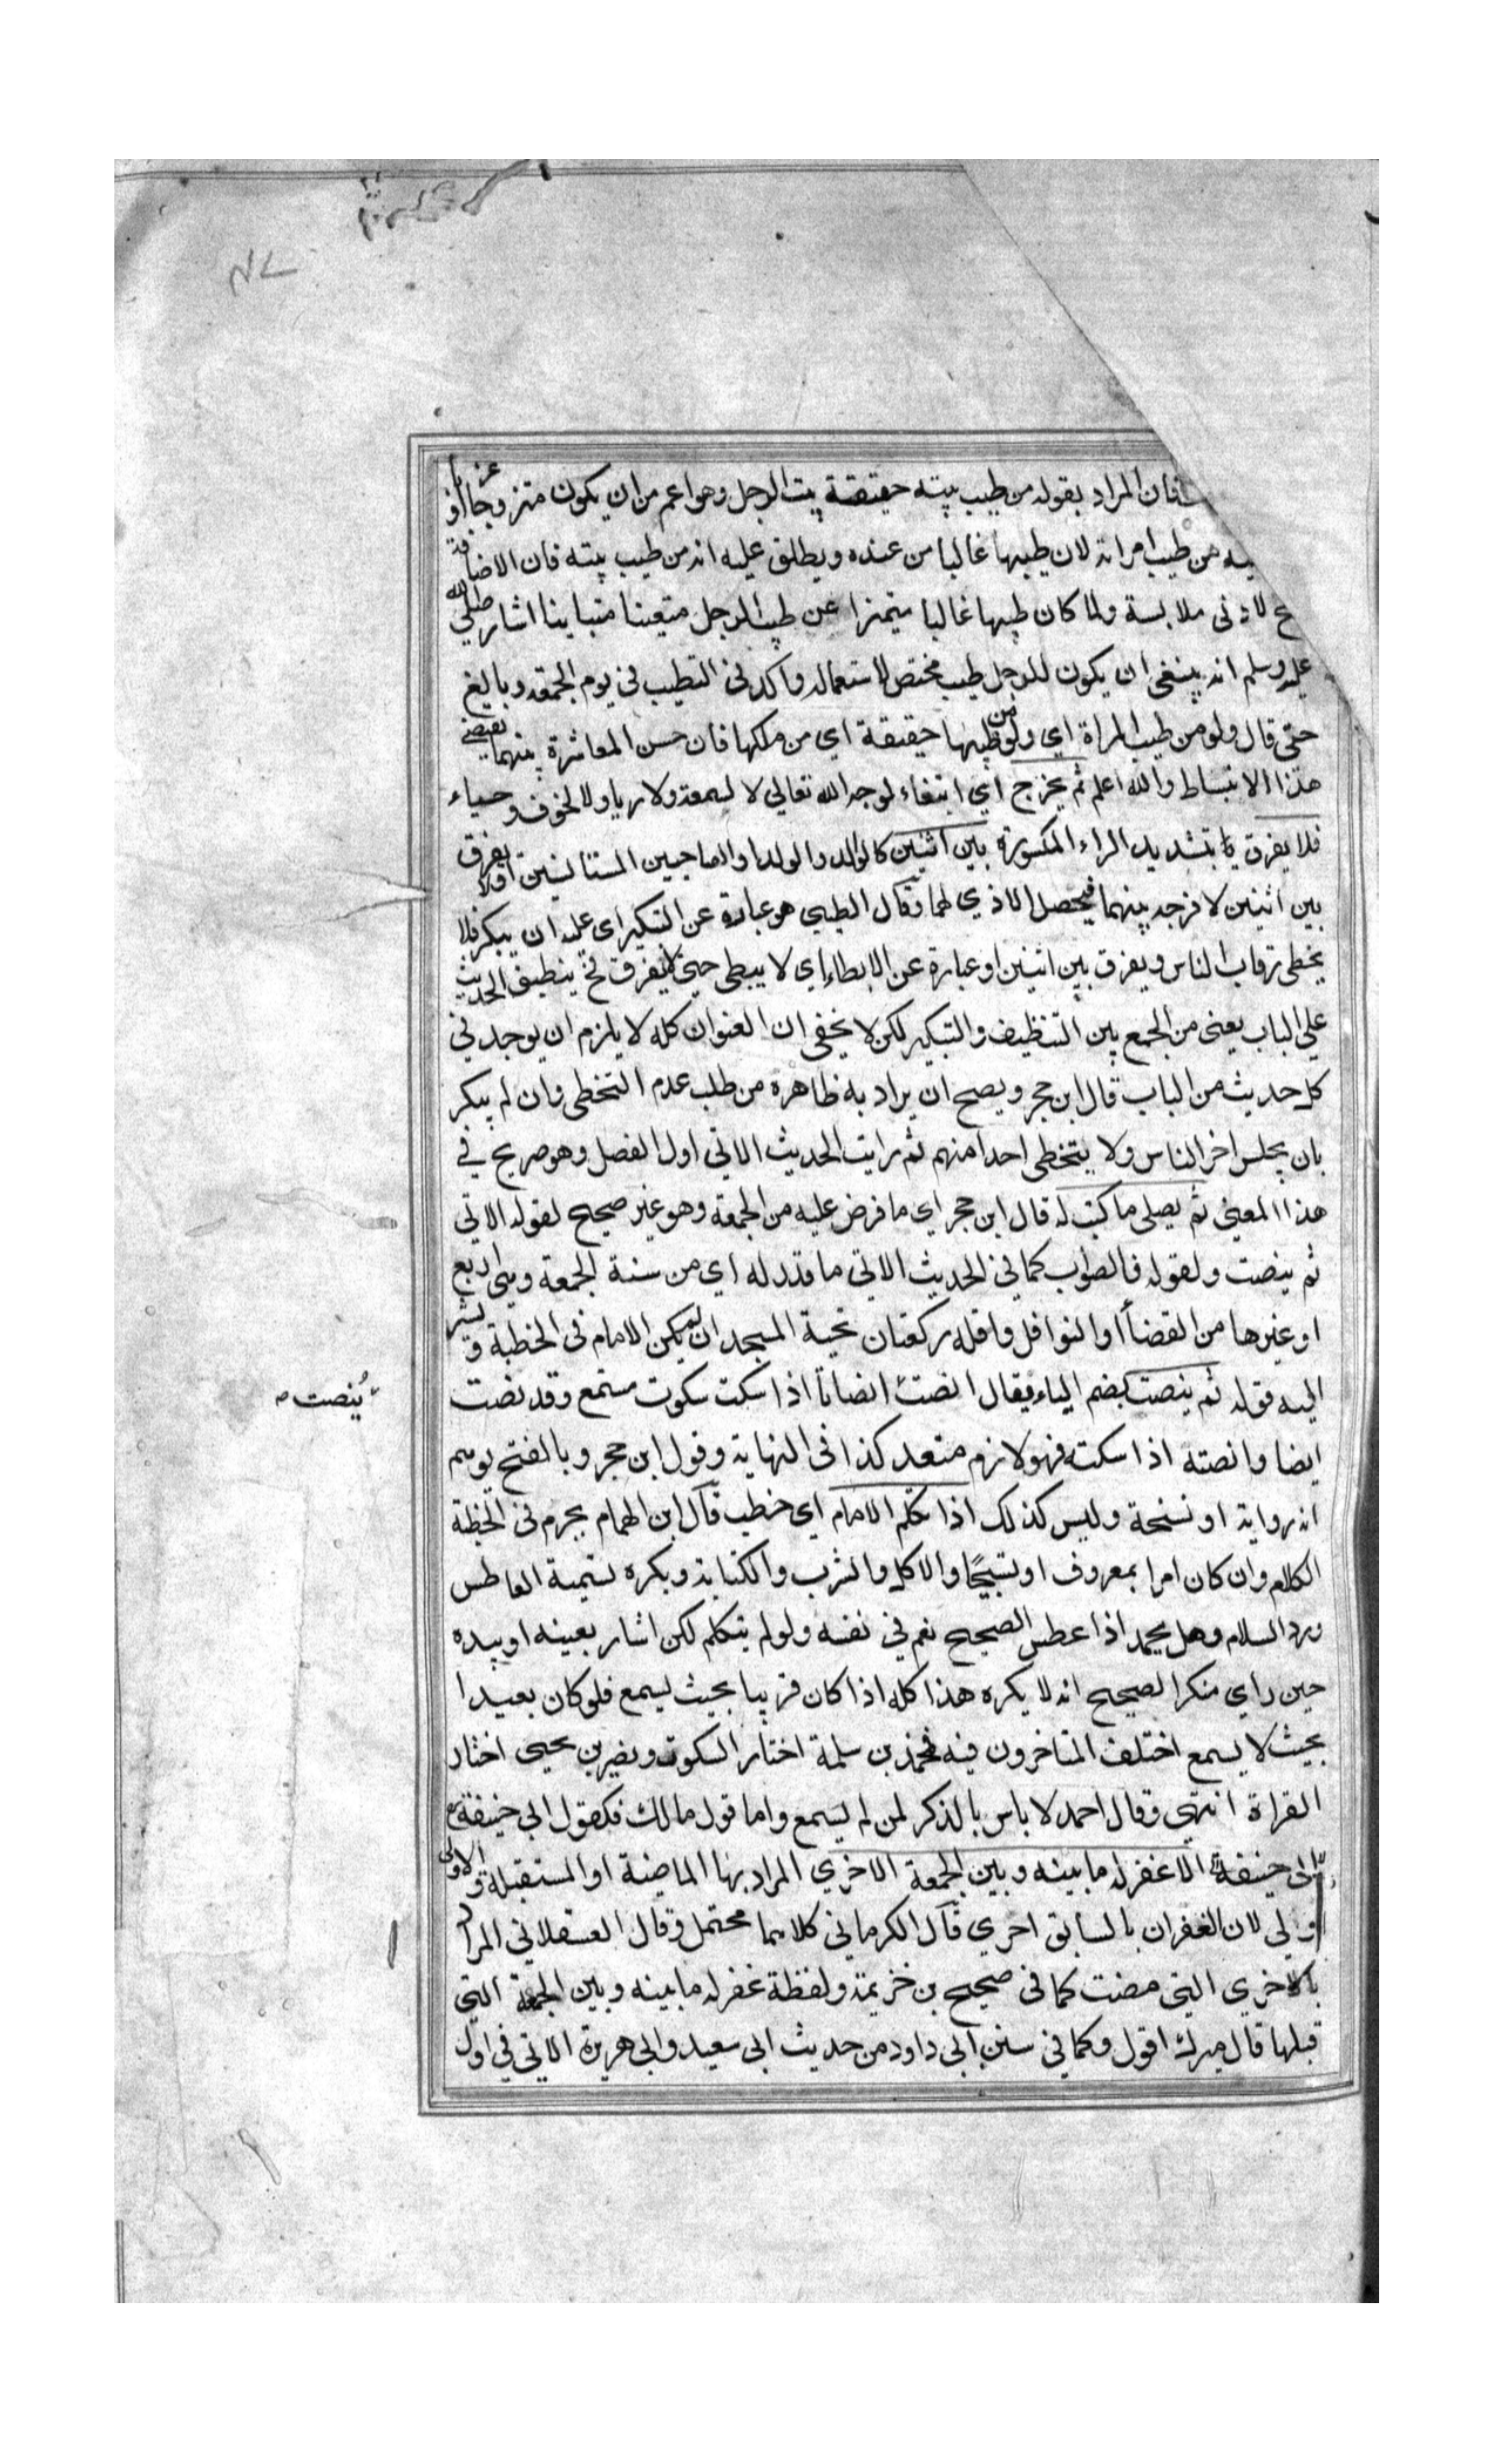 فان المراد بقوله من طيب بيته حقيقة بيت الرجل وهو اعم من ان يكون متزوجا او عزبا
من طيب امراته لان طيبها غالبا من عنده ويطلق عليه انه من طيب بيته فان الاضافة
لادنى ملابسة ولما كان طيبها غالبا متميزا عن طيب الرجل متعينا متباينا اشار صلي الله
عليه وسلم انه ينبغي ان يكون للرجل طيب مختص لاستعماله واكد في التطيب في يوم الجمعة وبالغ
حتى قال ولو من طيب المراة اي ولو من طيبها حقيقة اي من ملكها فان حسن المعاشرة بينهما يقتضي
هذا الانبساط والله اعلم ثم يخرج اي ابتغاء لوجه الله تعالي لا لسمعة ولا رياء ولا لخوف وحياء
فلا يفرق بتشديد الراء المكسورة بين اثنين كالوالد والولد او الصاحبين المستانسين اولا يفرق
بين اثنين لا فرجه بينهما فيحصل الاذي لهما وقال الطيبي هو عبارة عن التبكير اي عليه ان يبكر فلا
يخطى رقاب الناس ويفرق بين اثنين او عبارة عن الابطاء اي لا يبطى حتى لا يفرق فح ينطبق الحديث
علي الباب يعنى من الجمع بين التنظيف والتبكير لكن لا يخفى ان العنوان كله لا يلزم ان يوجد في
كل حديث من الباب قال ابن حجر ويصح ان يراد به ظاهره من طلب عدم التخطى وان لم يبكر
بان يجلس اخر الناس ولا يتخطى احدا منهم ثم رايت الحديث الاتى اول الفصل وهو صريح في
هذا المعنى ثم يصلى ما كتب له قال ابن حجر اي ما فرض عليه من الجمعة وهو غير صحيح لقوله الاتي
ثم ينصت ولقوله فالصواب كما في الحديث الاتى ما قدر له اي من سنة الجمعة وهى اربع
او غيرها من القضاأ او النوافل واقله ركعتان تحية المسجد ان لم يكن الامام فى الخطبة ويشير
اليه قوله ثم ينصت بضم الياء يقال انصت انصاتا اذا سكت سكوت مستمع وقد نصت
ايضا وانصته اذا سكته فهو لازم متعد كذا فى النهاية وقول ابن حجر وبالفتح يوهم
انه رواية او نسخة وليس كذلك اذا تكلم الامام اي خطب قال ابن الهمام يحرم فى الخطبة
الكلام وان كان امرا بمعروف او تسبيحًا والاكل والشرب والكتابة ويكره تشميت العاطس
ورد السلام وهل يحمد اذا عطس الصحيح نعم في نفسه ولو لم يتكلم لكن اشار بعينه او بيده
حين راي منكرا الصحيح انه لا يكره هذا كله اذا كان قريبا بحيث يسمع فلو كان بعيدا
بحيث لا يسمع اختلف المتاخرون فيه فمحمد بن سلمة اختار السكوت ونصير بن يحيى اختار
القراة انتهى وقال احمد لا باس بالذكر لمن لم يسمع واما قول مالك فكقول ابي حنيفة
ابى حنيفة الا غفر له ما بينه وبين الجمعة الاخري المراد بها الماضية او المستقبلة والاولى
اولي لان الغفران بالسابق احري قال الكرماني كلاهما محتمل وقال العسقلاني المراد
بالاخري التى مضت كما فى صحيح بن خزيمة ولفظة غفر له ما بينه وبين الجمعة التي
قبلها قال ميرك اقول وكما في سنن ابى داود من حديث ابى سعيد وابى هريرة الاتي في اول
يُنصت